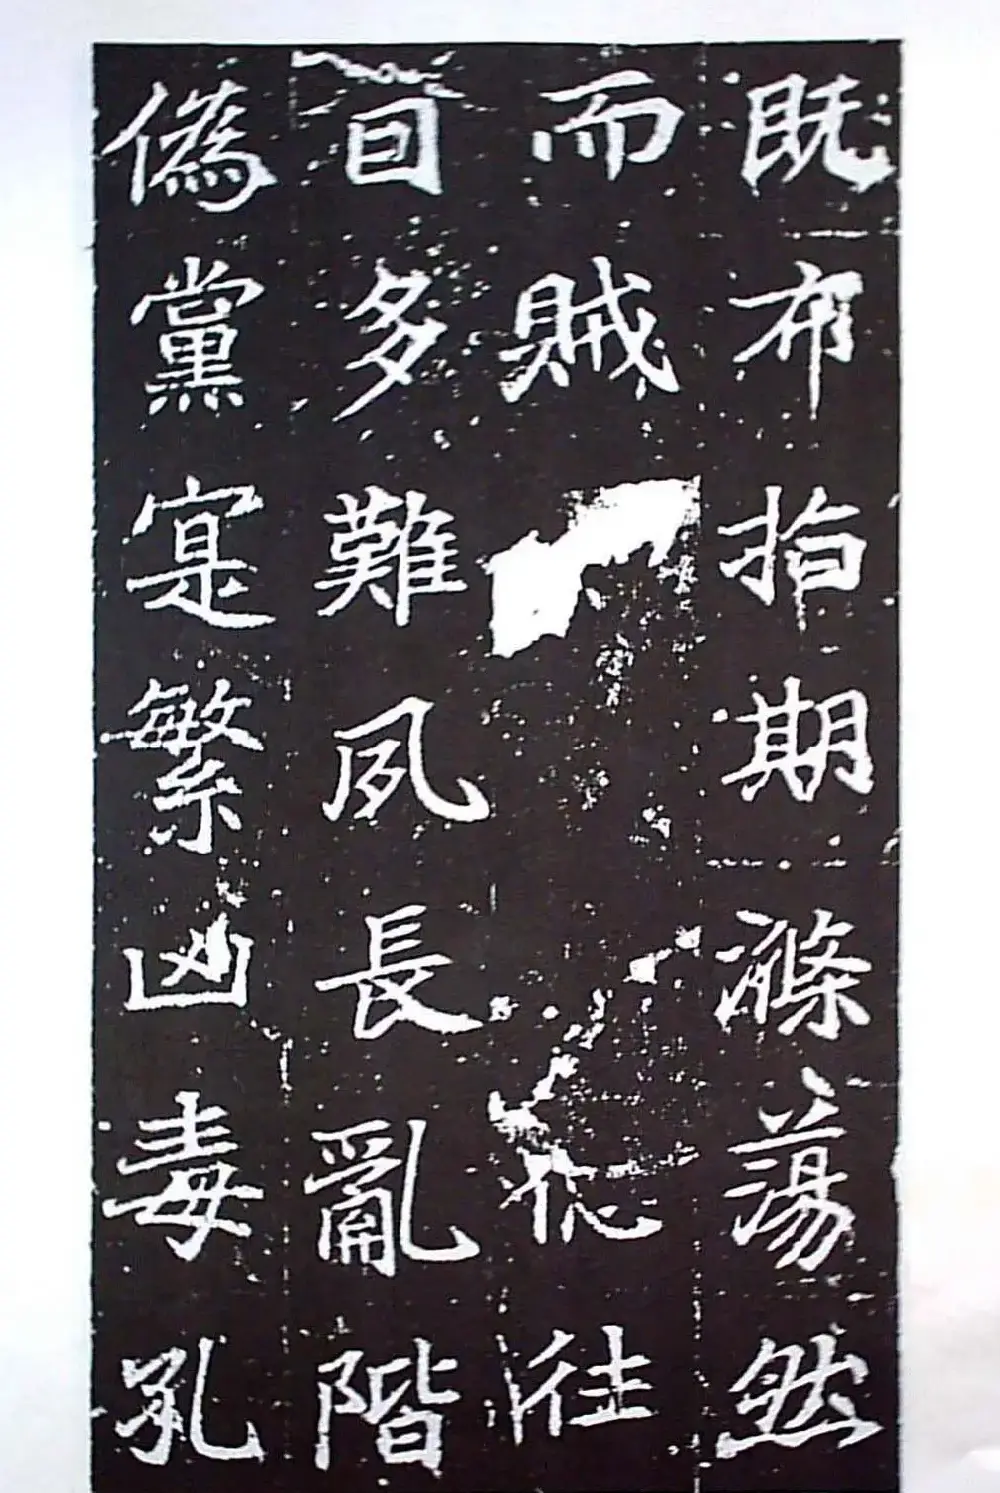 既布指期滌蕩然
而賊往
多難夙長亂階
偽黨寔繁凶毒孔